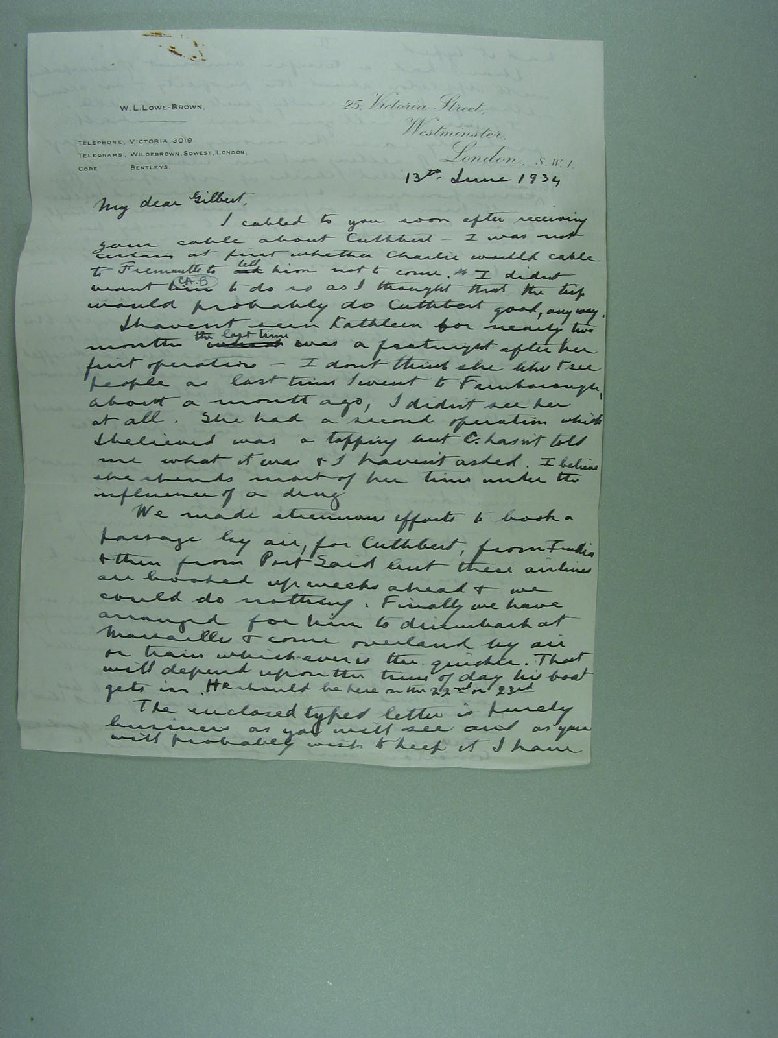 W. L. LOWE-BROWN.
TELEPHONE, VICTORIA, 3019
TELEGRAMS, WILDEBROWN, SOWEST, LONDON.
CODE BENTLEYS.
25, Victoria Street,
Westminster,
London, S.W.1.
13th June 1934
My dear Gilbert,
I cabled to you soon after receiving
your cable about Cuthbert – I was not
at first whether Charlie would cable
to Fremantle to tell him not to come, & I didnt
want him CA.B to do so as I thought that the trip
would probably do Cuthbert good, anyway.
I havent seen Kathleen for nearly two
months the last time was a fortnight after her
first operation – I dont think she see
people as last time I went to Farnborough,
about a month ago, I didnt see her
at all. She had a second operation which
I believed was a topping but C. hasnt told
me what it was & I havent asked. I believe
she spends most of her time under the
influence of a drug
We made strenuous efforts to book a
passage by air, for Cuthbert, from India
& then from Port Said but these airlines
are booked up weeks ahead & we
could do nothing. Finally we have
arranged for him to disembark at
Marseilles & come overland by air
or train whichever is the quicker. That
will depend upon the time of day his boat
gets in. He should be here on the 22nd or 23rd
The enclosed typed letter is purely
business as you will see and as you
will probably wish to keep it I have